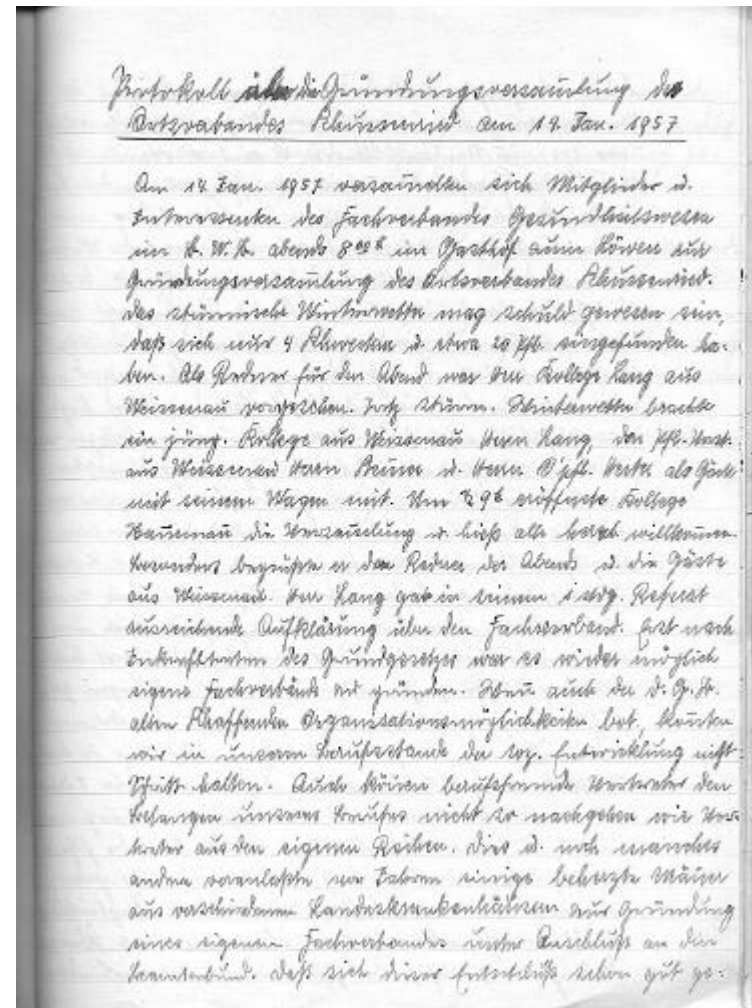 Protokoll über die Gründungsversammlung des
Ortsverbandes Schussenried am 19. Jan. 1957
Am 19. Jan. 1957 versam̄elten sich Mitglieder u.
Interessenten des Fachverbandes Gesundheitswesen
im abends 8⁰⁰ im Gasthof zum Löwen zur
Gründungsversam̄lung des Ortsverbandes Schussenried.
Das stürmische Winterwetter mag schuld gewesen sein,
daß sich nur 4 Schwestern u. etwa 20 Pfl. eingefunden ha-
ben. Als Redner für den Abend war Herr Kollege Lang aus
Weissenau vorgesehen. Trotz stürm. Winterwetter brachte
ein jüng. Kollege aus Weissenau Herrn Lang, den Pfl.-Vorst.
aus Weissenau Herrn u. Herrn O'pfl. als Gäste
mit seinem Wagen mit. Um ½ 9 eröffnete Kollege
die Versam̄lung u. hieß alle herzl. willkom̄en.
Besonders begrüßte er den Redner des Abends u. die Gäste
aus Weissenau. Herr Lang gab in seinem 1 stdg. Referat
ausreichende Aufklärung über den Fachverband. Erst nach
Inkrafttreten des Grundgesetzes war es wieder möglich
eigene Fachverbände zu gründen. Wen̄ auch der D.G.B.
allen Schaffenden Organisationsmöglichkeiten bot, kon̄ten
wir in unserem Berufsstande der soz. Entwicklung nicht
Schritt halten. Auch kön̄en berufsfremde Vertreter den
Belangen unseres Berufes nicht so nachgehen wie Ver-
treter aus den eigenen Reihen. Dies u. noch manches
andere veranlaßte vor Jahren einige beherzte Män̄er
aus verschiedenen Landeskrankenhäusern zur Gründung
eines eigenen Fachverbandes unter Anschluß an den
Beamtenbund. Daß sich dieser Entschluß schon gut ge-